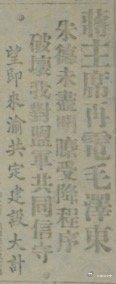 蔣主席再電毛澤東
朱德未盡明瞭受降程序
破壞我對盟軍共同信守
望即來渝共定建設大計